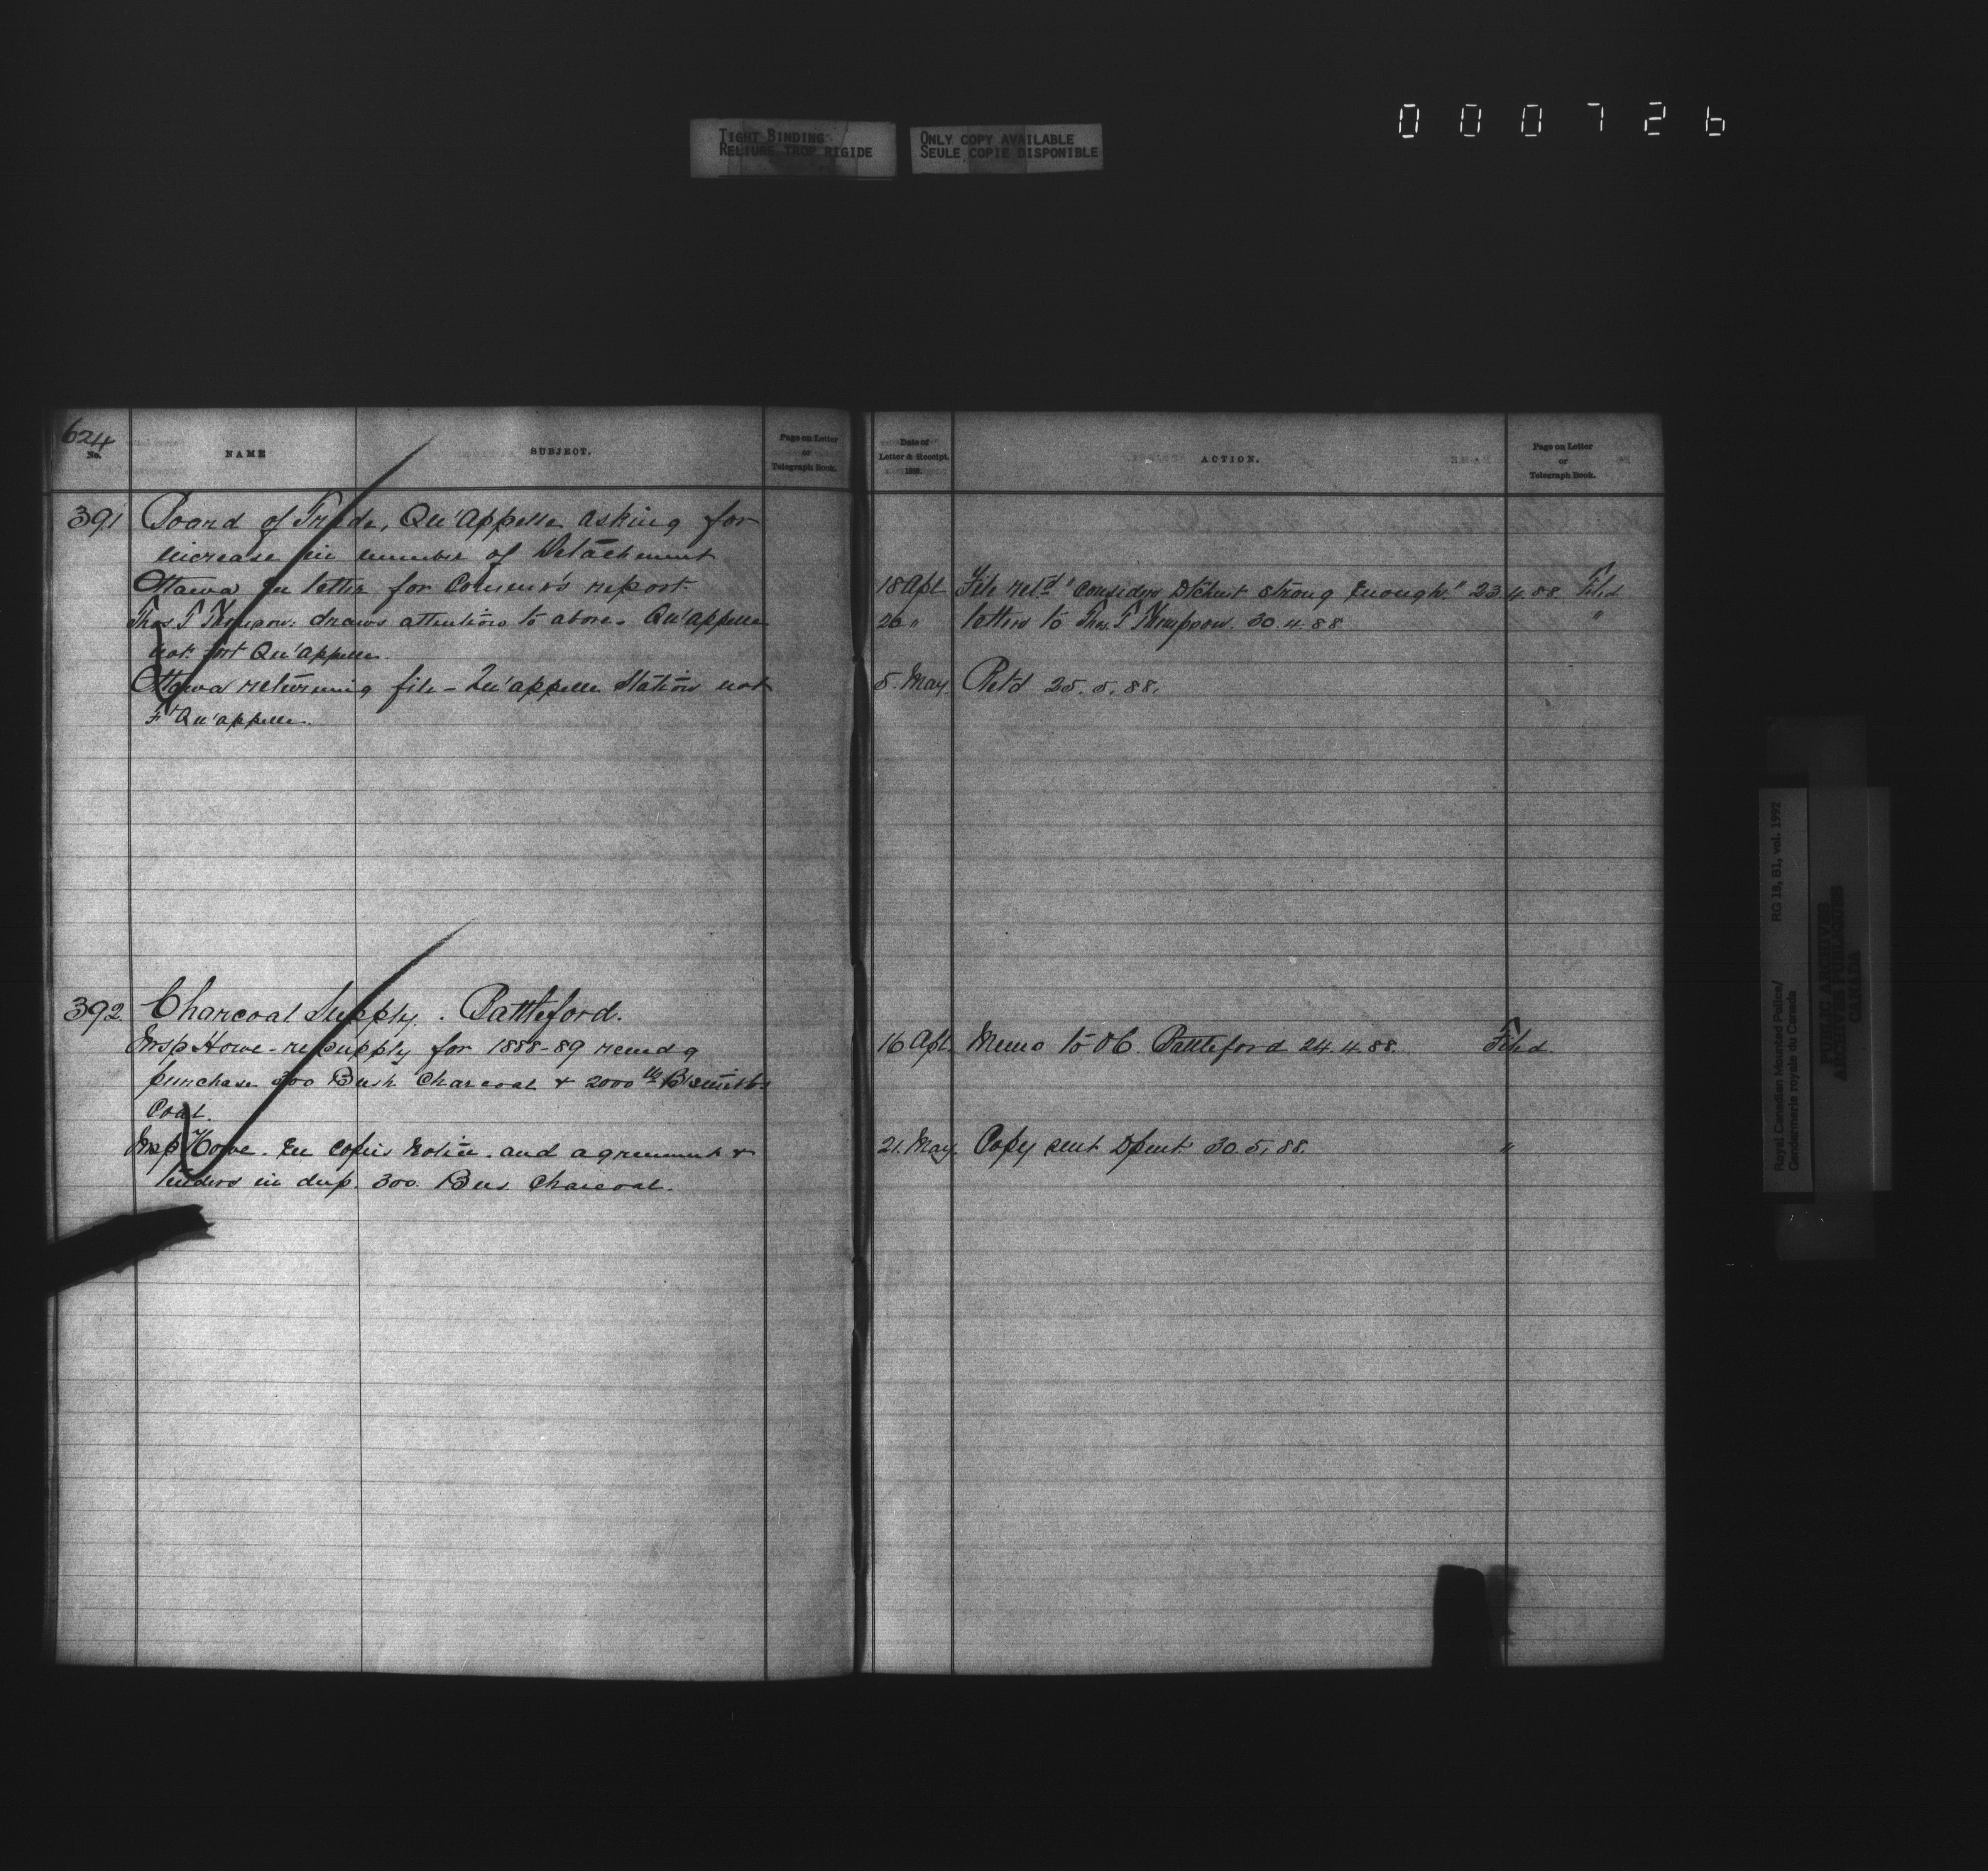 000726
TIGHT BINDING
RELIURE TROP RIGIDE
ONLY COPY AVAILABLE
SEULE COPIE DISPONIBLE
624
No.
NAME
SUBJECT.
Page on Letter
or
Telegraph Book.
Date of
Letter & Receipt.
188
ACTION.
Page on Letter
or
Telegraph Book.
391 Board of Trade, Qu'Appelle asking for
increase in number of Detachment
Ottawa En letter for Commr's report. 18 Apl File retd "considers Dtchmt strong enough" 23.4.88. Filed
Thos T Thompson. draws attention to above. Qu'appelle 26 " letter to Thos. T Thompson. 30.4.88 "
not Fort Qu'appelle.
Ottawa returning file - Qu'appelle Station not 5. May. Retd 25.5.88.
Ft Qu'appelle.
392. Charcoal Supply. Battleford.
Insp Howe - re supply for 1888-89 recmdg 16 Apl. Memo to OC. Battleford 24.4.88. Filed.
purchase 300 Bush Charcoal & 2000 lb Bsmiths
Coal.
Insp Howe. En copies notice. and agreement & 21. May. Copy sent Dpmt 30.5.88. "
tenders in dup. 300. Bus. Charcoal.
Royal Canadian Mounted Police/ RG 18, B1, vol. 1992
Gendarmerie royale du Canada
PUBLIC ARCHIVES
ARCHIVES PUBLIQUES
CANADA